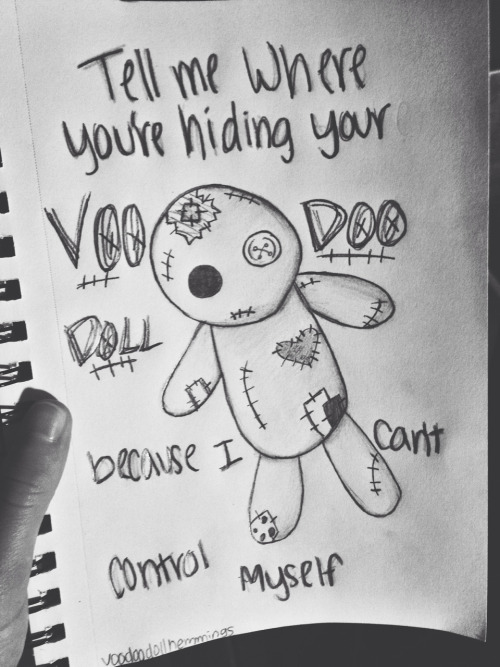 Tell me Where
you're hiding your
VOO DOO
DOLL
because I can't
control Myself
voodoodollhemmings